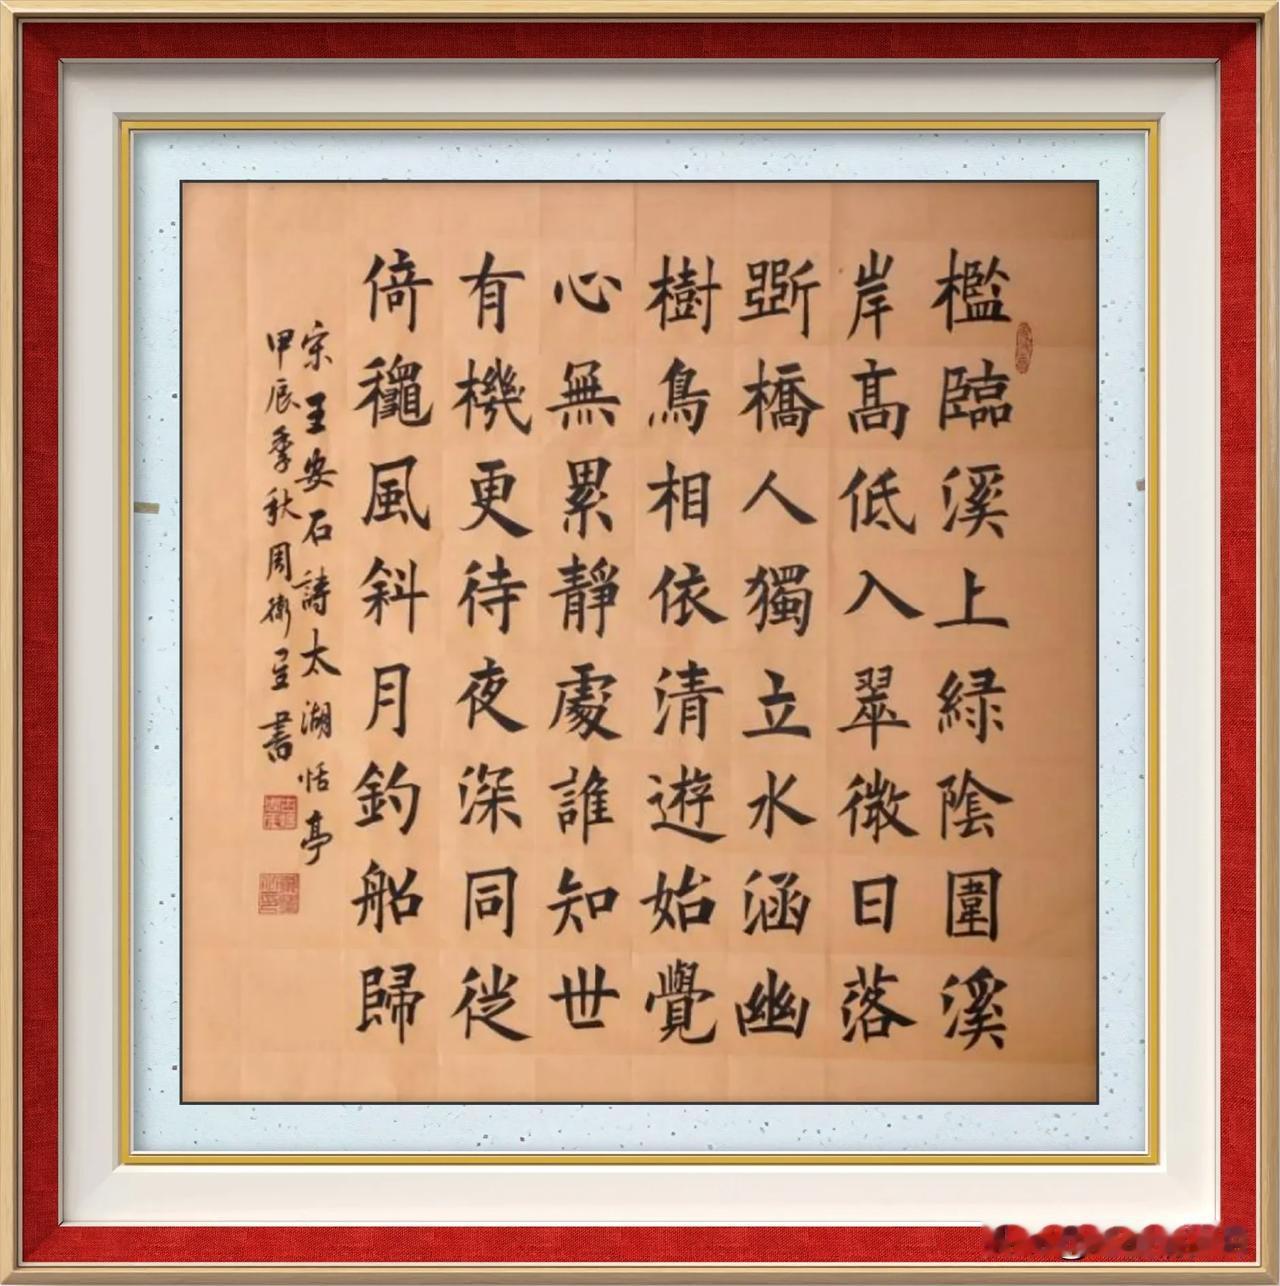 檻臨溪上緑陰圍溪
岸高低入翠微日落
斷橋人獨立水涵幽
樹鳥相依清遊始覺
心無累靜處誰知世
有機更待夜深同從
倚穐風斜月釣船歸
宋王安石詩太湖恬亭
甲辰季秋周衛星書